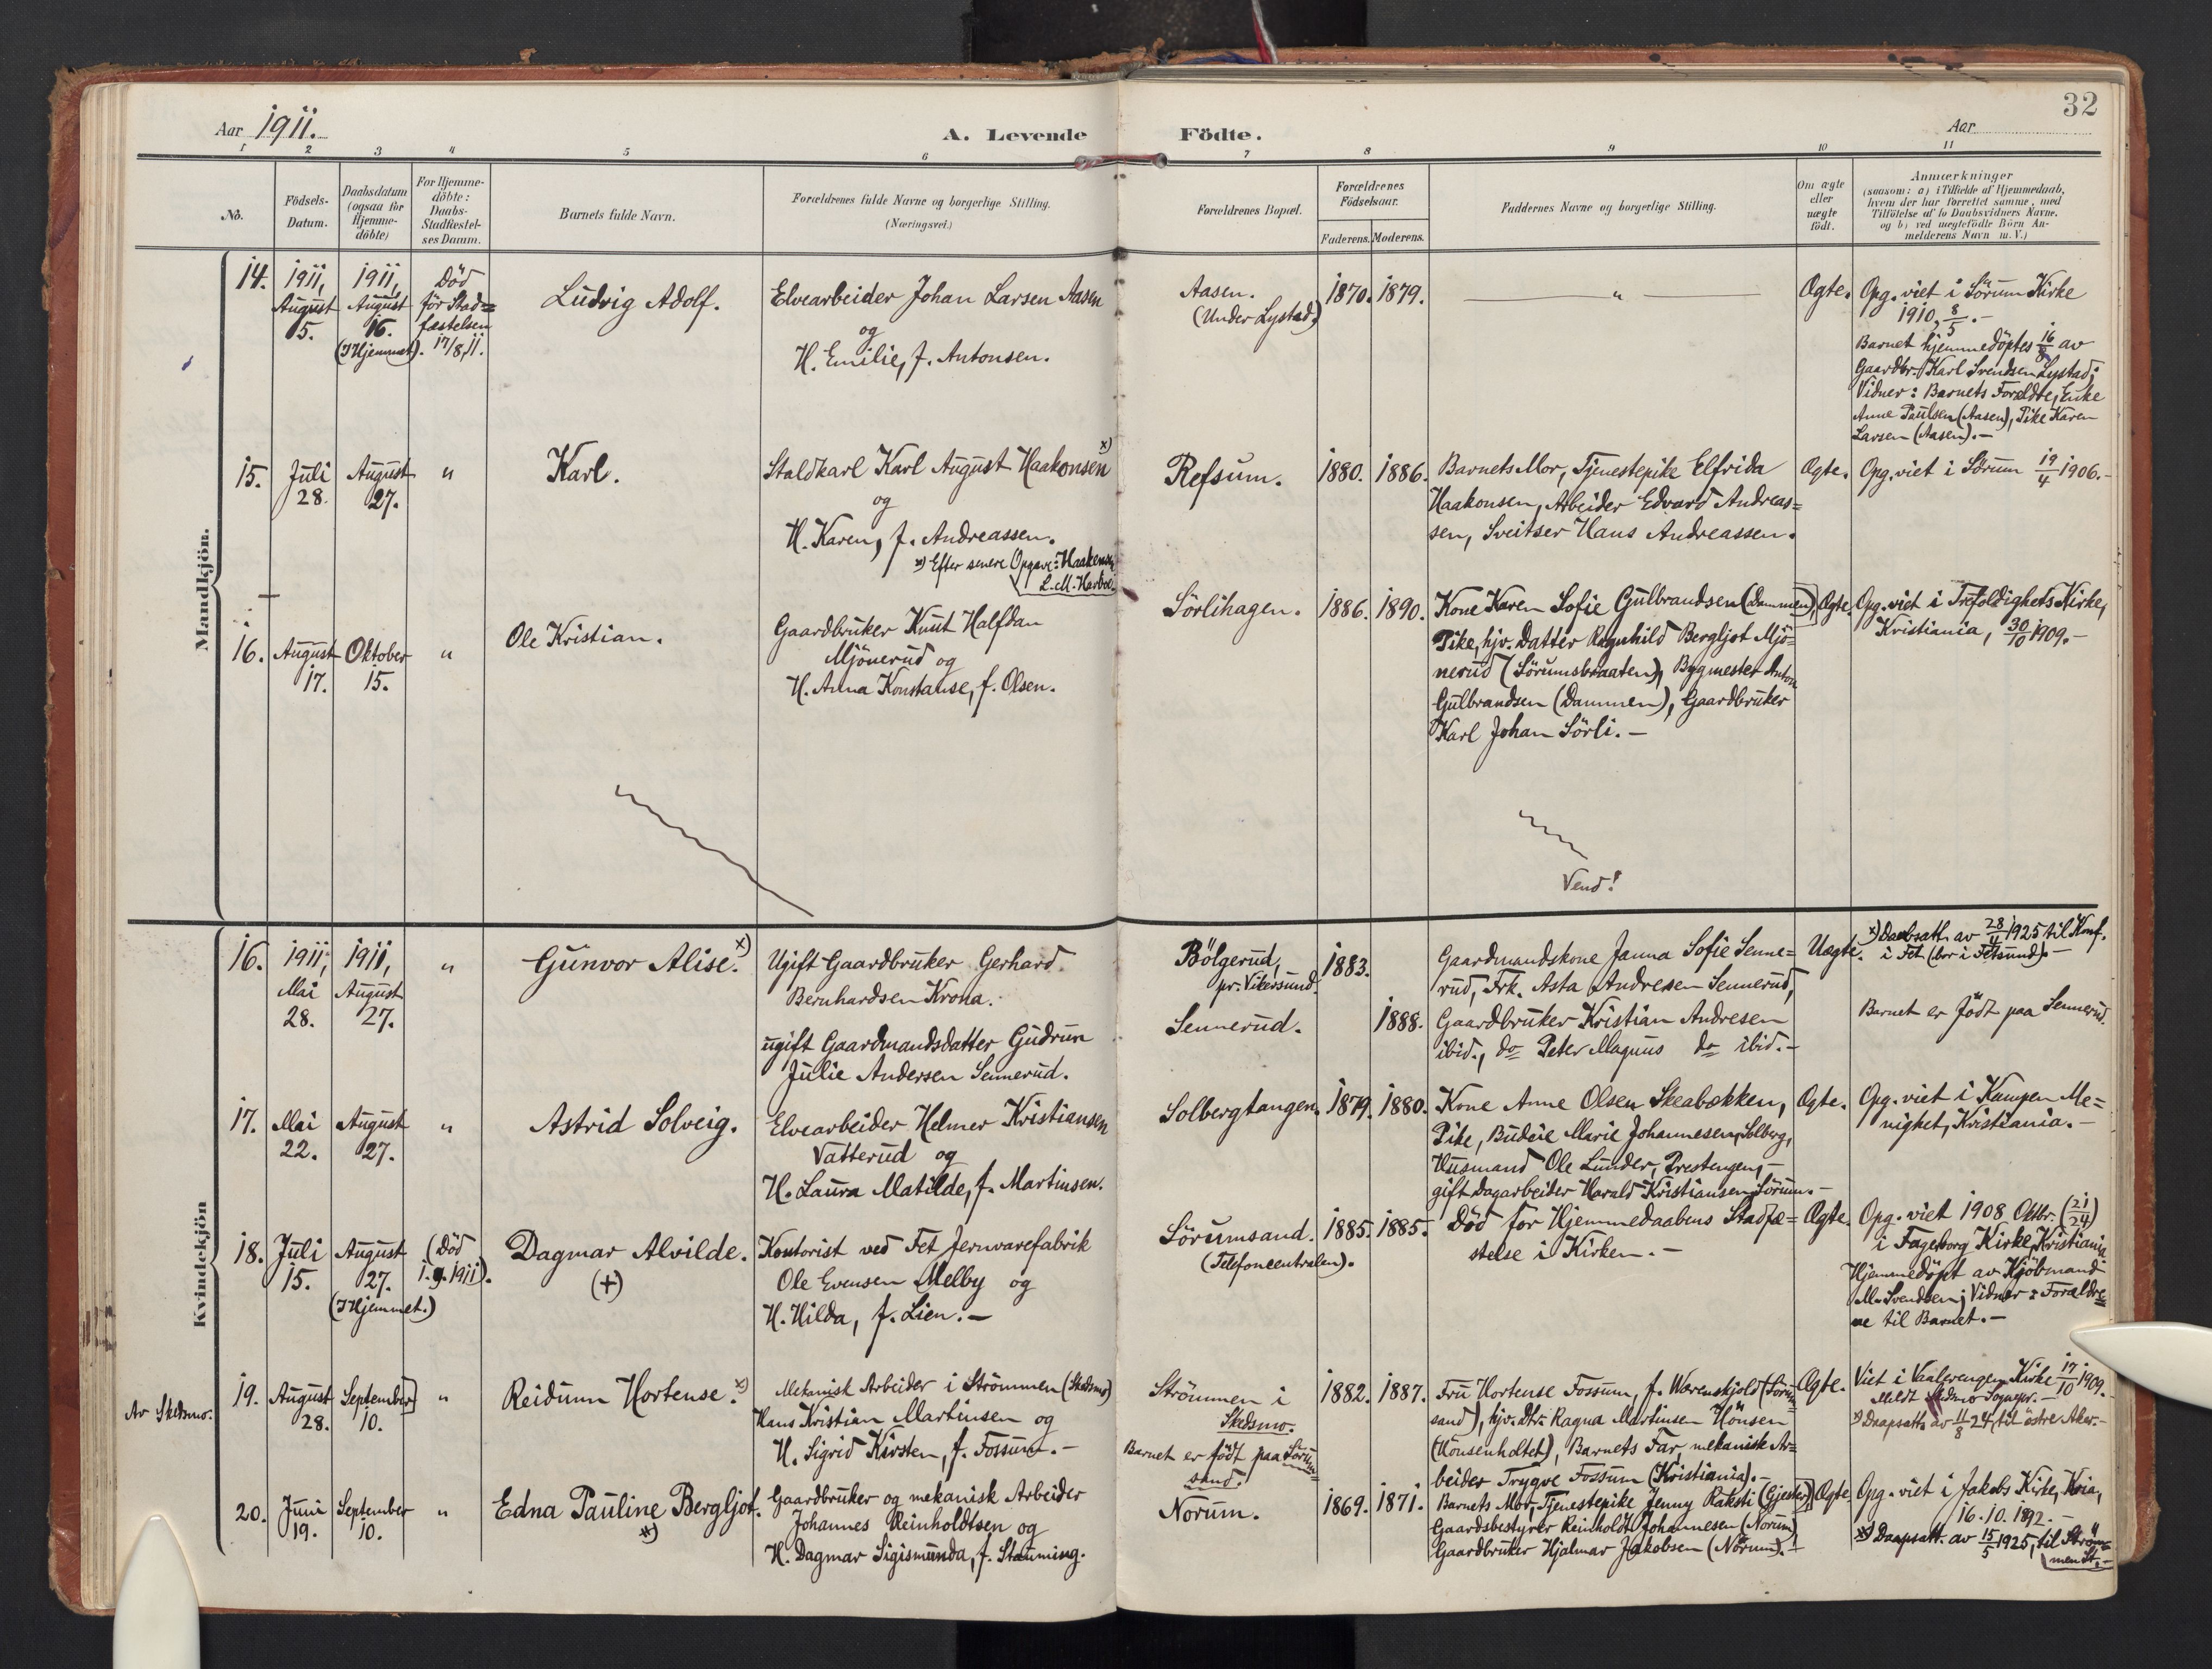 32
Aar 1911.
A. Levende Födte.
Aar
1 2 3 4 5 6 7 8 9 10 11
No.
Födsels-
Datum.
Daabsdatum
(ogsaa for
Hjemme-
döbte)
For Hjemme-
döbte:
Daabs-
Stadfæstel-
ses Datum.
Barnets fulde Navn.
Forældrenes fulde Navne og borgerlige Stilling.
(Næringsvei.)
Forældrenes Bopæl.
Forældrenes
Födselsaar.
Faderens. Moderens.
Faddernes Navne og borgerlige Stilling.
Om ægte
eller
uægte
födt.
Anmærkninger
(saasom: a) i Tilfælde af Hjemmedaab,
hvem der har forrettet samme, med
Tilföielse af to Daabsvidners Navne,
og b) ved uægtefödte Börn An-
melderens Navn m. V.)
Mandkjön.
14.
1911,
August
5.
1911,
August
16.
(I Hjemmet).
Död
för Stad=
fæstelsen
17/8, 11.
Ludvig Adolf.
Elvearbeider Johan Larsen Aasen
og
H. Emilie, f. Antonsen.
Aasen.
(Under Lystad.)
1870. 1879.
"
Ægte.
Opg. viet i Sörum Kirke
1910, 8/5.-
Barnet hjemmedöptes 16/8 av
Gaardbr. Karl Svendsen Lystad;
Vidner: Barnets Forældre, Enke
Anne Paulsen (Aasen), Pike Karen
Larsen (Aasen).-
15.
Juli
28.
August
27.
"
Karl.
Staldkarl Karl August Haakonsen x)
og
H. Karen, f. Andreassen.
x) Efter senere Opgave: Haakensen
L. M. Harboe.
Refsum.
1880. 1886.
Barnets Mor, Tjenestepike Elfrida
Haakonsen, Arbeider Edvard Andreas=
sen, Sveitser Hans Andreassen.
Ægte.
Opg. viet i Sörum 19/4 1906.-
16.
August
17.
Oktober
15.
"
Ole Kristian.
Gaardbruker Knut Halfdan
Mjönerud og
H. Anna Konstanse, f. Olsen.
Sörlihagen.
1886. 1890.
Kone Karen Sofie Gulbrandsen (Dammen),
Pike, hjv. Datter Ragnhild Bergljot Mjö=
nerud (Sörumsbraaten), Bygmester Anton
Gulbrandsen (Dammen), Gaardbruker
Karl Johan Sörli.-
Ægte.
Opg. viet i Trefoldighets Kirke,
Kristiania, 30/10 1909.-
Vend!
Kvindekjön
16.
1911,
Mai
28.
1911,
August
27.
"
Gunvor Alise. x)
Ugift Gaardbruker Gerhard
Bernhardsen Krona.
ugift Gaardmandsdatter Gudrun
Julie Andersen Sennerud.
Bölgerud,
pr. Vikersund.
Sennerud.
1883.
1888.
Gaardmandskone Janna Sofie Senne=
rud, Frk. Asta Andresen Sennerud,
Gaardbruker Kristian Andresen
ibid., do Peter Magnus do ibid.-
Uægte.
x) Daabsatt. av 28/4 1925 til Konf.
i Fet (bor i Fetsund).-
Barnet er födt paa Sennerud.
17.
Mai
22.
August
27.
"
Astrid Solveig.
Elvearbeider Helmer Kristiansen
Vatterud og
H. Laura Matilde, f. Martinsen.
Solbergtangen.
1879. 1880.
Kone Anne Olsen Skeabækken,
Pike, Budeie Marie Johannesen, Solberg,
Husmand Ole Lunder, Prestengen,-
gift Dagarbeider Harald Kristiansen, Sörum.-
Ægte.
Opg. viet i Kampen Me=
nighet, Kristiania.-
18.
Juli
15.
August
27.
(I Hjemmet.)
(Död
1. 9. 1911).
Dagmar Alvilde.
(+)
Kontorist ved Fet Jernvarefabrik
Ole Evensen Melby og
H. Hilda, f. Lien.-
Sörumsand.
(Telefoncentralen).
1885. 1885.
Död for Hjemmedaabens Stadfæ=
stelse i Kirken.-
Ægte.
Opg. viet 1908 Oktbr. (21/24)
i Fagerborg Kirke, Kristiania
Hjemmedöpt av Kjöbmand
M. Svendsen; Vidner: Forældre
ne til Barnet.-
Av Skedsmo.
19.
August
28.
September
10.
"
Reidunn Hortense. x)
Mekanisk Arbeider i Strömmen (Skedsmo)
Hans Kristian Martinsen og
H. Sigrid Kirsten, f. Fossum.-
Strömmen i
Skedsmo.
Barnet er födt paa Sörum=
sand.
1882. 1887.
Fru Hortense Fossum, f. Wærenskjold (Sörum
sand), hjv. dtr. Ragna Martinsen Hönsen
(Hönsenholtet), Barnets Far, mekanisk Ar=
beider Trygve Fossum (Kristiania).-
Ægte.
Viet i Vaalerengen Kirke 17/10 1909.
Meldt Skedsmo Sognepr.-
x) Daapsatt. av 11/8 24, til Östre Aker.-
20.
Juni
19.
September
10.
"
Edna Pauline Bergljot.
x)
Gaardbruker og mekanisk Arbeider
Johannes Reinholdtsen og
H. Dagmar Sigismunda, f. Stamming.
Norum.
1869. 1871.
Barnets Mor, Tjenestepike Jenny Raksti (Gjester),
Gaardsbestyrer Reinholdt Johannesen (Norum),
Gaardbruker Hjalmar Jakobsen (Norum).-
Ægte.
Opg. viet i Jakobs Kirke, Kria,
16. 10. 1892.-
x) Daapsatt. av 15/5 1925, til Ström=
men St.-